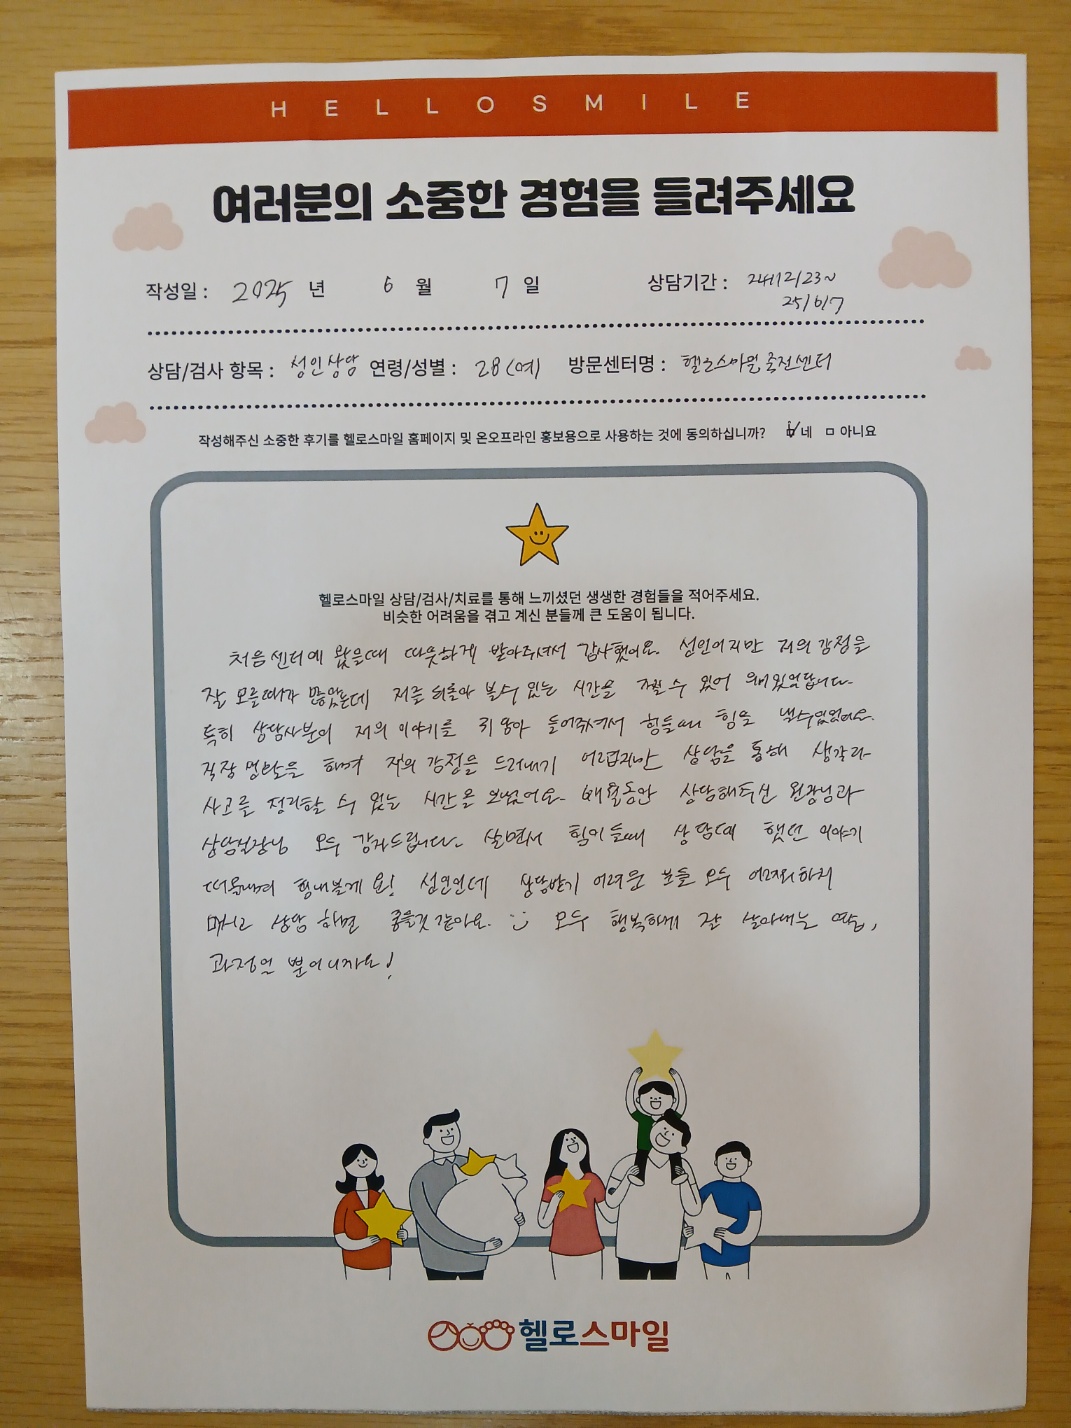 HELLOSMILE
여러분의 소중한 경험을 들려주세요
작성일 : 2025 년 6 월 7 일 상담기간 : 24/12/23~
25/6/7
상담/검사 항목 : 성인상담 연령/성별 : 28(여) 방문센터명 : 헬로스마일 죽전센터
작성해주신 소중한 후기를 헬로스마일 홈페이지 및 온오프라인 홍보용으로 사용하는 것에 동의하십니까? ☑네 □아니요
헬로스마일 상담/검사/치료를 통해 느끼셨던 생생한 경험들을 적어주세요.
비슷한 어려움을 겪고 계신 분들께 큰 도움이 됩니다.
처음 센터에 왔을때 따뜻하게 받아주셔서 감사했어요. 성인이지만 저의 감정을
잘 모를때가 많았는데 저를 되돌아 볼수 있는 시간을 가질 수 있어 의미있었답니다.
특히 상담사분이 저의 이야기를 귀 기울여 들어주셔서 힘들때 힘을 낼수있었어요.
직장 생활을 하며 저의 감정을 드러내기 어렵지만 상담을 통해 생각과
사고를 정리할 수 있는 시간을 보냈어요. 6개월동안 상담해주신 원장님과
상담실장님 모두 감사드립니다. 살면서 힘이 들때 상담때 했던 이야기
떠올리며 힘내볼게요! 성인인데 상담받기 어려운 분들 모두 어려워하지
마시고 상담 하면 좋을것 같아요. :) 모두 행복하게 잘 살아내는 연습,
과정일 뿐이니까요!
헬로스마일